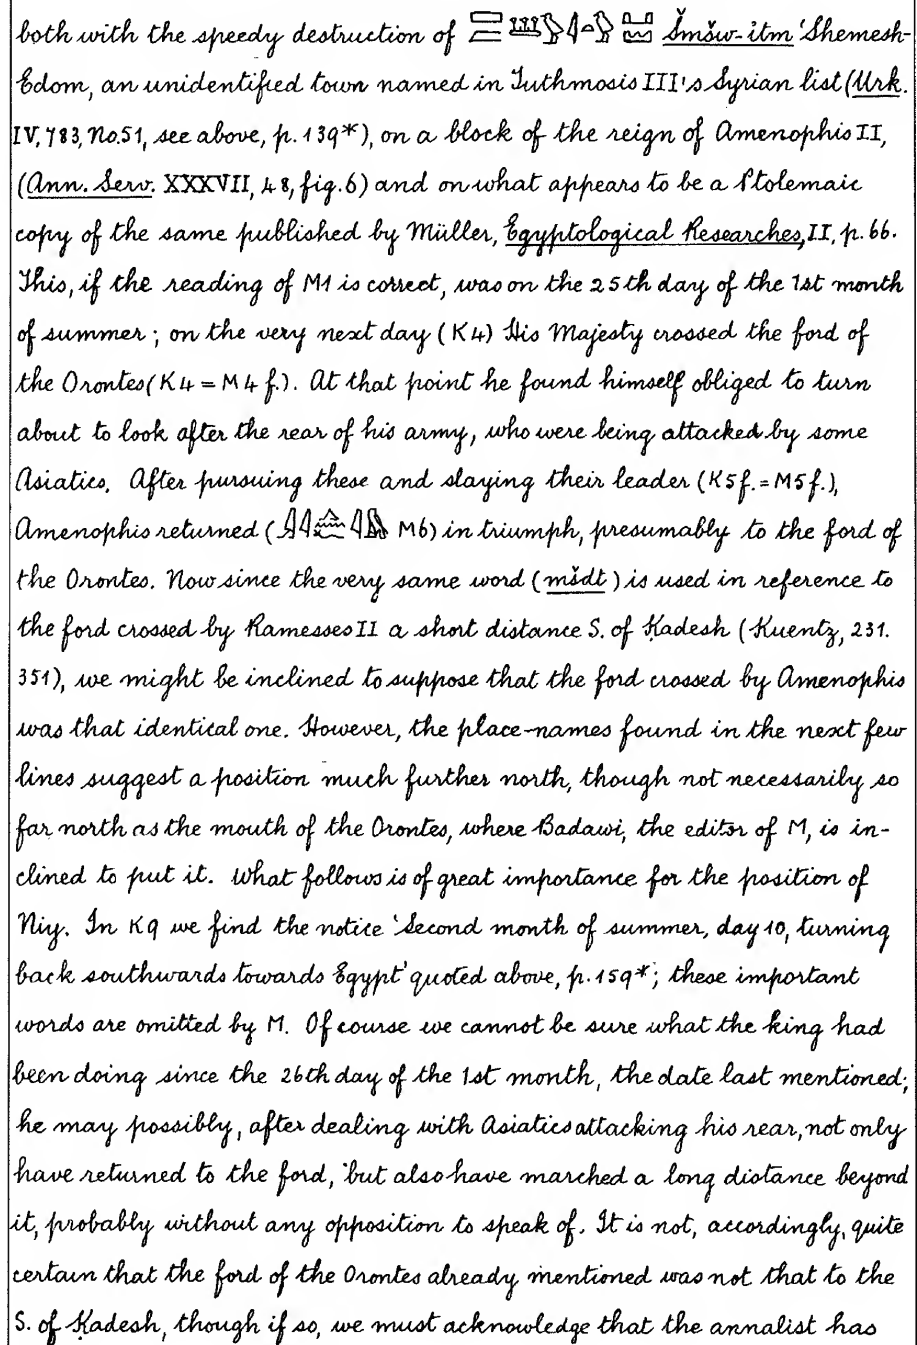 both with the speedy destruction of Šmšw-ỉtm 'Shemesh-
Edom, an unidentified town named in Tuthmosis III's Syrian list (Urk.
IV, 783, No. 51, see above, p. 139*), on a block of the reign of Amenophis II,
(Ann. Serv. XXXVII, 48, fig. 6) and on what appears to be a Ptolemaic
copy of the same published by Müller, Egyptological Researches, II, p. 66.
This, if the reading of M1 is correct, was on the 25th day of the 1st month
of summer; on the very next day (K4) His Majesty crossed the ford of
the Orontes (K4 = M4 f.). At that point he found himself obliged to turn
about to look after the rear of his army, who were being attacked by some
Asiatics. After pursuing these and slaying their leader (K5f. = M5f.),
Amenophis returned ( M6) in triumph, presumably to the ford of
the Orontes. Now since the very same word (mšdt) is used in reference to
the ford crossed by Ramesses II a short distance S. of Ḳadesh (Kuentz, 231.
351), we might be inclined to suppose that the ford crossed by Amenophis
was that identical one. However, the place-names found in the next few
lines suggest a position much further north, though not necessarily so
far north as the mouth of the Orontes, where Badawi, the editor of M, is in-
clined to put it. What follows is of great importance for the position of
Niy. In K9 we find the notice 'Second month of summer, day 10, turning
back southwards towards Egypt' quoted above, p. 159*; these important
words are omitted by M. Of course we cannot be sure what the king had
been doing since the 26th day of the 1st month, the date last mentioned;
he may possibly, after dealing with Asiatics attacking his rear, not only
have returned to the ford, but also have marched a long distance beyond
it, probably without any opposition to speak of. It is not, accordingly, quite
certain that the ford of the Orontes already mentioned was not that to the
S. of Ḳadesh, though if so, we must acknowledge that the annalist has